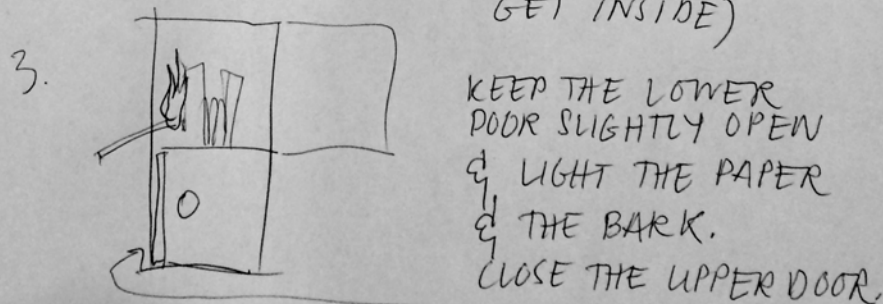 GET INSIDE)
3.
KEEP THE LOWER
DOOR SLIGHTLY OPEN
& LIGHT THE PAPER
& THE BARK.
CLOSE THE UPPER DOOR.